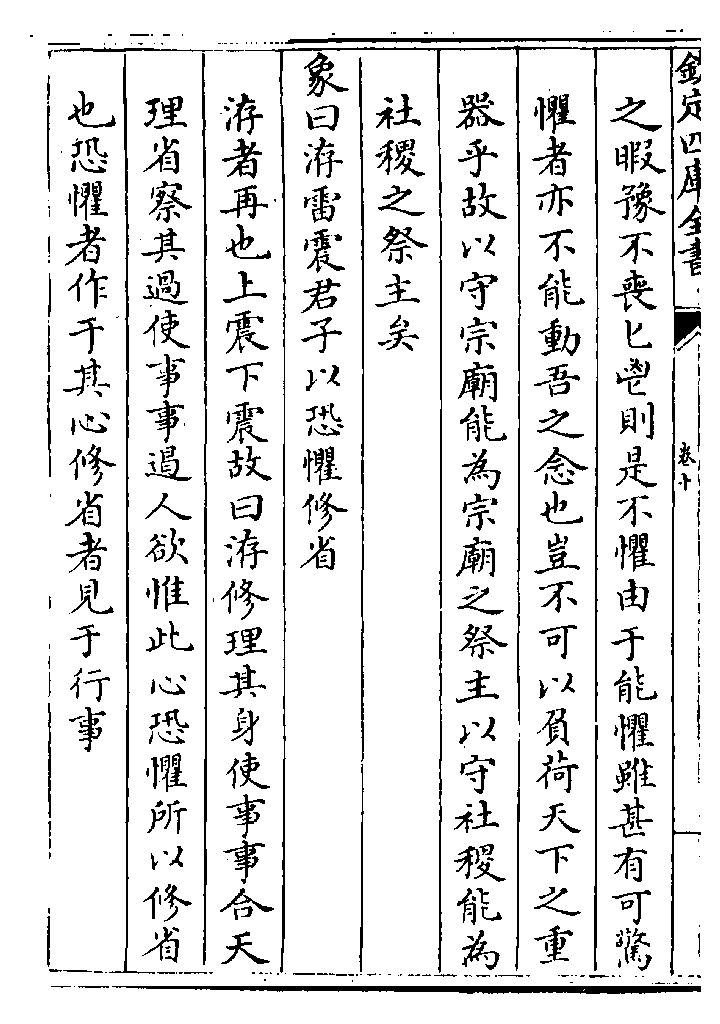 欽定四庫全書
卷十
之暇豫不喪匕鬯則是不懼由于能懼雖甚有可驚
懼者亦不能動吾之念也豈不可以負荷天下之重
器乎故以守宗廟能為宗廟之祭主以守社稷能為
社稷之祭主矣
象曰洊雷震君子以恐懼修省
洊者再也上震下震故曰洊修理其身使事事合天
理省察其過使事事遏人欲惟此心恐懼所以修省
也恐懼者作于其心修省者見于行事